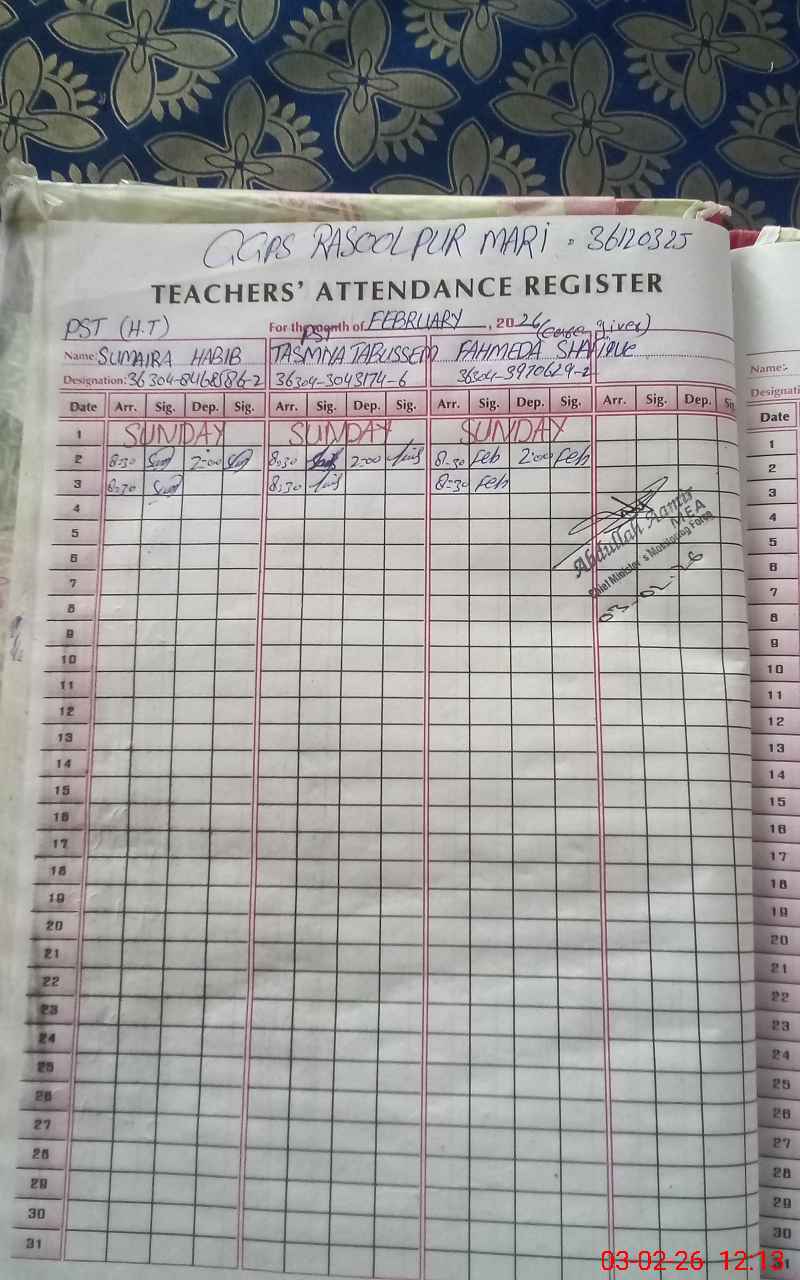 GGPS RASOOLPUR MARI . 36120325
TEACHERS' ATTENDANCE REGISTER
PST (H.T) For the month of FEBRUARY, 2026 (care giver)
PST
Name: SUMAIRA HABIB TASMINA TABUSSEM FAHMEDA SHAFIQUE
Designation: 36304-8468586-2 36304-3043174-6 36304-3970629-2
Date Arr. Sig. Dep. Sig. Arr. Sig. Dep. Sig. Arr. Sig. Dep. Sig. Arr. Sig. Dep. Sig.
1 SUNDAY SUNDAY SUNDAY
2 8:30 2:00 8:30 2:00 8-30 Feb 2:00 Feb
3 8:30 8:30 8-30 Feb
4
5
6
7
8
9
10
11
12
13
14
15
16
17
18
19
20
21
22
23
24
25
26
27
28
29
30
31
Abdullah Aamir
M.E.A
Chief Minister's Monitoring Force
03-02-26
Name:-
Designati
Date
1
2
3
4
5
6
7
8
9
10
11
12
13
14
15
16
17
18
19
20
21
22
23
24
25
26
27
28
29
30
03-02-26 12:13